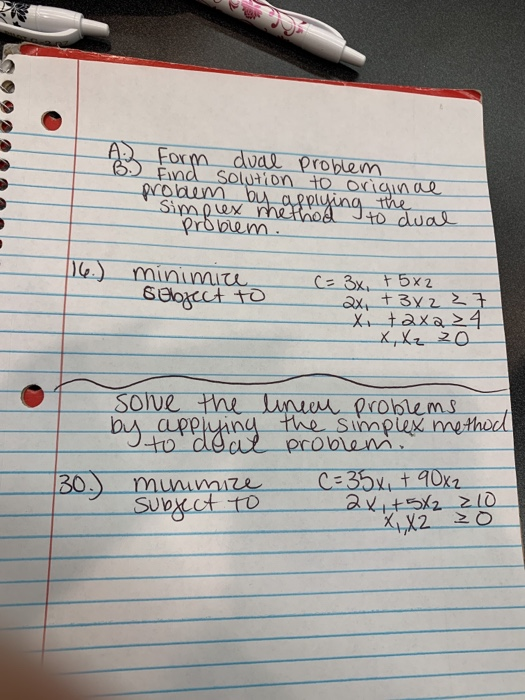 A.) Form dual problem
B.) Find solution to original
problem by applying the
simplex method to dual
problem.
16.) minimize C = 3x₁ + 5x₂
subject to 2x₁ + 3x₂ ≥ 7
x₁ + 2x₂ ≥ 4
x₁ x₂ ≥ 0
solve the linear problems
by applying the simplex method
to dual problem.
30.) minimize C = 35x₁ + 90x₂
subject to 2x₁ + 5x₂ ≥ 10
x₁, x2 ≥ 0